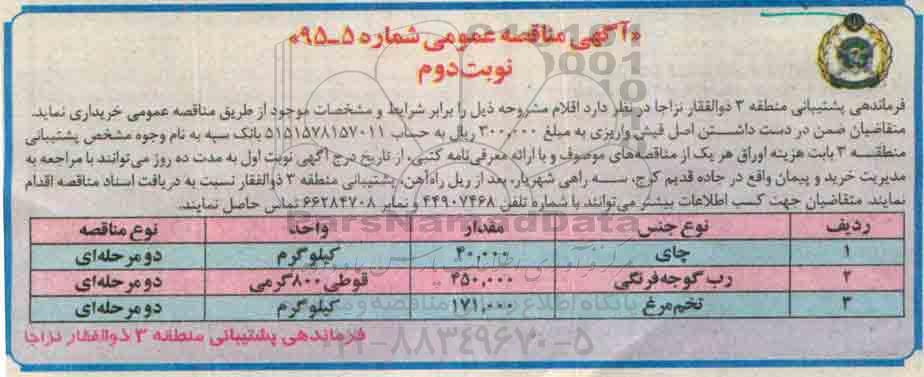 «آگهی مناقصه عمومی شماره ۵ـ۹۵»
نوبت دوم
فرماندهی پشتیبانی منطقه ۳ ذوالفقار نزاجا در نظر دارد اقلام مشروحه ذیل را برابر شرایط و مشخصات موجود از طریق مناقصه عمومی خریداری نماید.
متقاضیان ضمن در دست داشتن اصل فیش واریزی به مبلغ ۳۰۰,۰۰۰ ریال به حساب ۵۱۵۱۵۷۸۱۵۷۰۱۱ بانک سپه به نام وجوه مشخص پشتیبانی
منطقه ۳ بابت هزینه اوراق هر یک از مناقصه‌های موصوف و با ارائه معرفی‌نامه کتبی، از تاریخ درج آگهی نوبت اول به مدت ده روز می‌توانند با مراجعه به
مدیریت خرید و پیمان واقع در جاده قدیم کرج، سه راهی شهریار، بعد از ریل راه‌آهن، پشتیبانی منطقه ۳ ذوالفقار نسبت به دریافت اسناد مناقصه اقدام
نمایند. متقاضیان جهت کسب اطلاعات بیشتر می‌توانند با شماره تلفن ۴۴۹۰۷۴۶۸ و نمابر ۶۶۲۸۴۷۰۸ تماس حاصل نمایند.
ردیف نوع جنس مقدار واحد نوع مناقصه
۱ چای ۴۰,۰۰۰ کیلوگرم دو مرحله‌ای
۲ رب گوجه‌فرنگی ۴۵۰,۰۰۰ قوطی ۸۰۰ گرمی دو مرحله‌ای
۳ تخم‌مرغ ۱۷۱,۰۰۰ کیلوگرم دو مرحله‌ای
فرماندهی پشتیبانی منطقه ۳ ذوالفقار نزاجا
ParsNamadData
۰۲۱-۸۸۳۴۹۶۷۰-۵